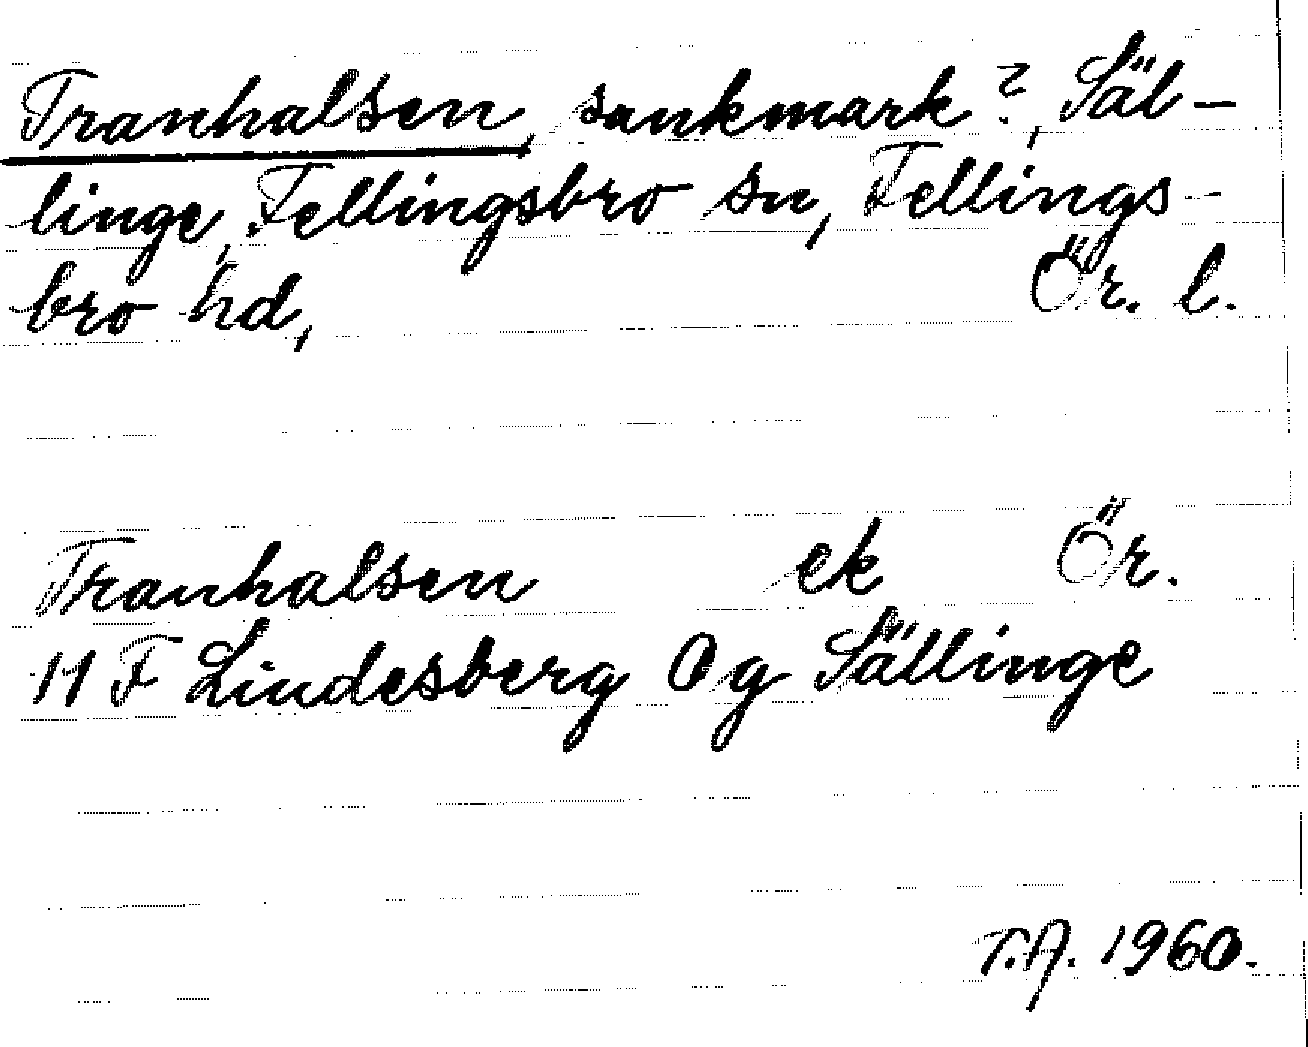 Tranhalsen, sankmark?, Säl-
linge, Fellingsbro sn, Fellings-
bro hd, Ör. l.
Tranhalsen ek Ör.
11 F Lindesberg 0 g Sällinge
T.A. 1960.